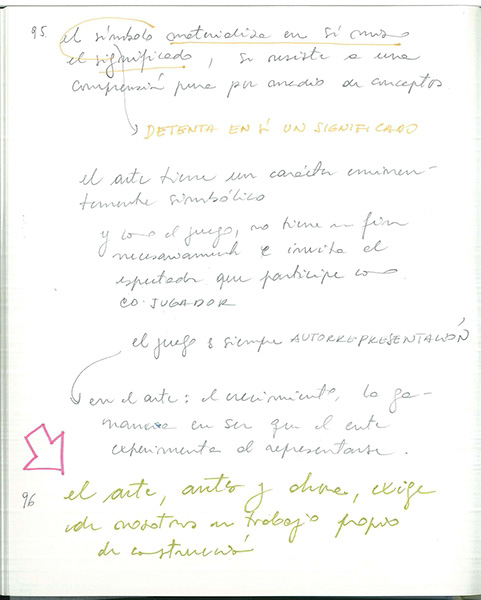 95 el símbolo materializa en sí mismo
el significado, se resiste a una
comprensión pura por medio de conceptos
DETENTA EN SÍ UN SIGNIFICADO
el arte tiene un carácter eminen-
temente simbólico
y como el juego, no tiene un fin
necesariamente e invita al
espectador que participe como
CO-JUGADOR
el juego es siempre AUTORREPRESENTACIÓN
en el arte: el crecimiento, la ga-
nancia en ser que el ente
experimenta al representarse.
96 el arte, antes y ahora, exige
de nosotros un trabajo propio
de construcción